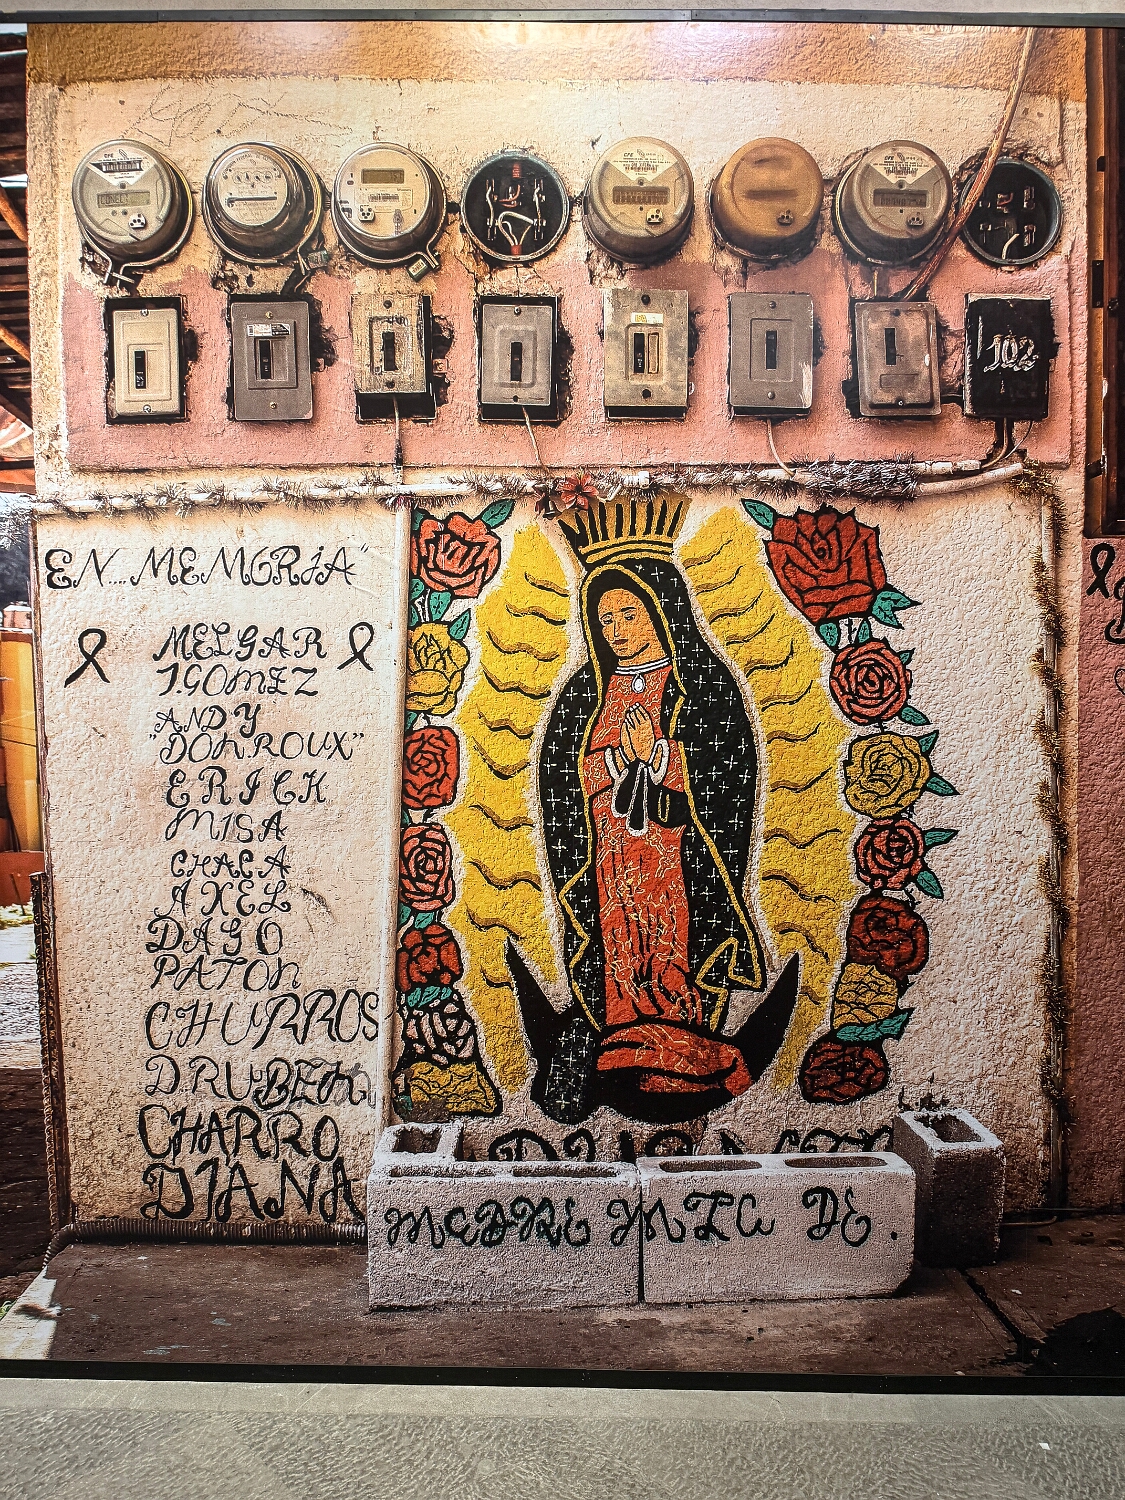 CFE
CFE
CFE
102
EN....MEMORIA"
MELGAR
J.GOMEZ
ANDY
"DON.ROUX"
ERICK
MISA
CHACA
AXEL
DAGO
PATON
CHURROS
D.RUBEN
CHARRO
DIANA
MADRE MIA DE.